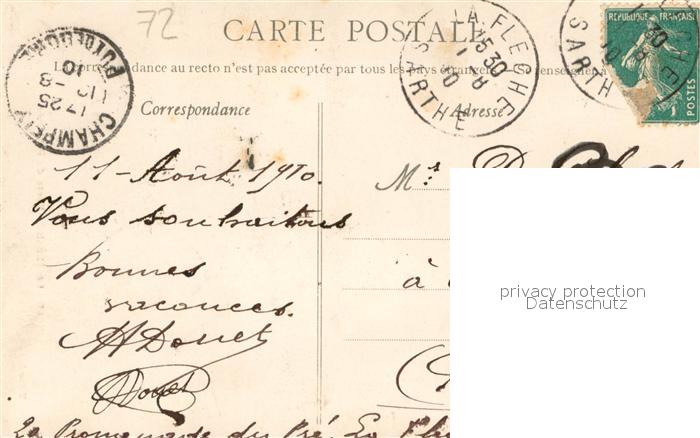 72
CARTE POSTALE
La correspondance au recto n'est pas acceptée par tous les pays étrangers se renseigner à
LA FLECHE
15 30
11 8
10
SARTHE
RÉPUBLIQUE FRANÇAISE
POSTES
17 25
10
Correspondance
Adresse
11 - Août 1910.
Mr
Vous souhaitons
Bonnes
vacances.
à
HDouet
Douet
privacy protection
Datenschutz
La Promenade du Pré. La Flè